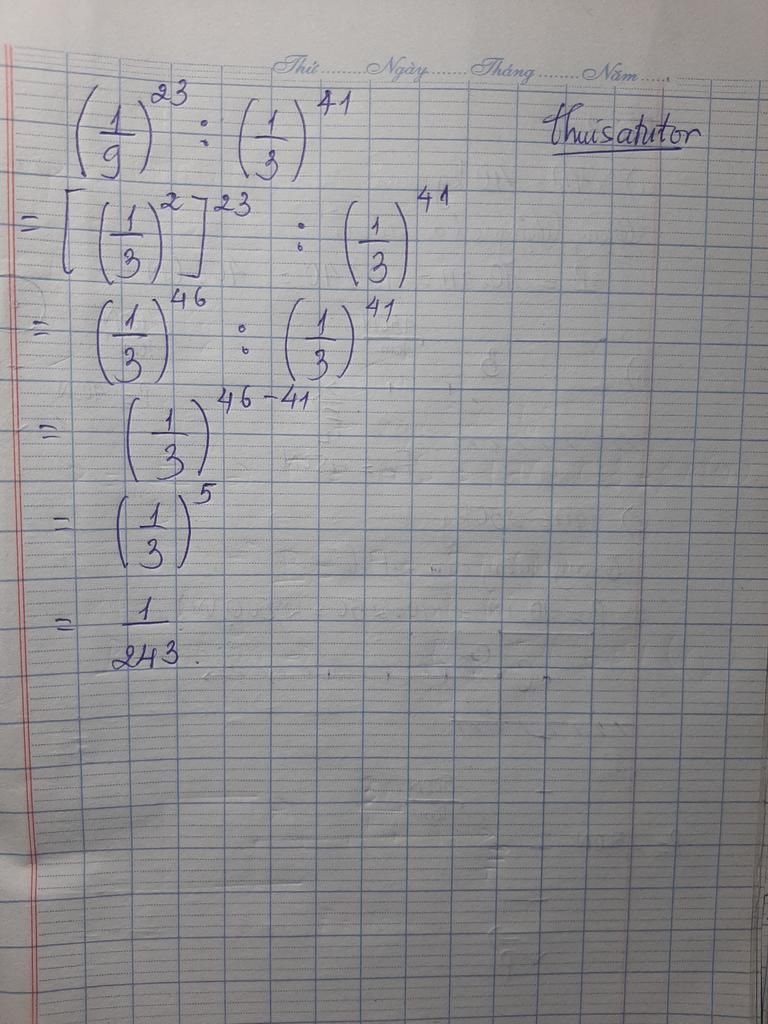 Thứ.........Ngày.......Tháng........Năm......
(1/9)^23 : (1/3)^41
thuisatutor
= [(1/3)^2]^23 : (1/3)^41
= (1/3)^46 : (1/3)^41
= (1/3)^46-41
= (1/3)^5
= 1/243.